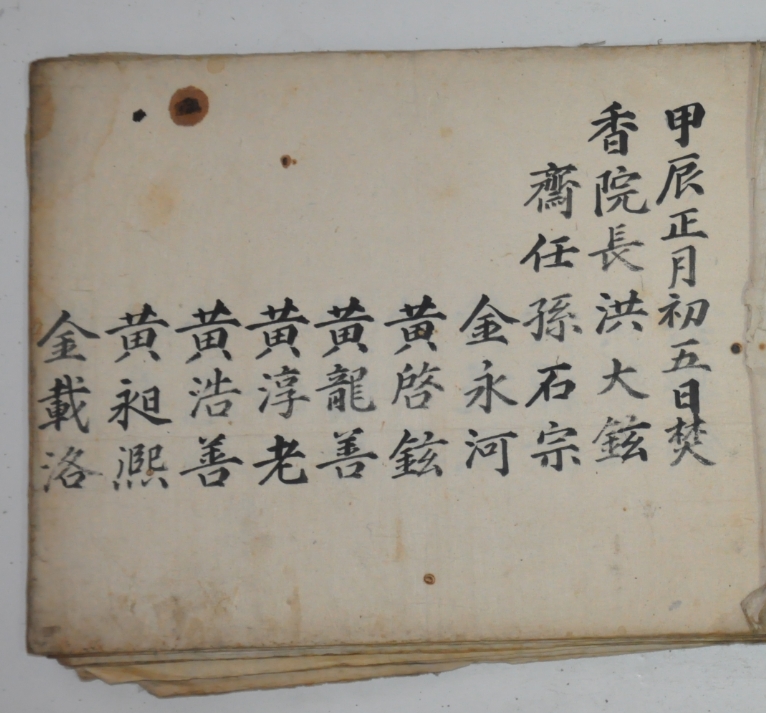 甲辰正月初五日焚
香院長洪大鉉
齋任孫石宗
金永河
黄啓鉉
黄龍善
黄淳老
黄浩善
黄昶熈
金載洛